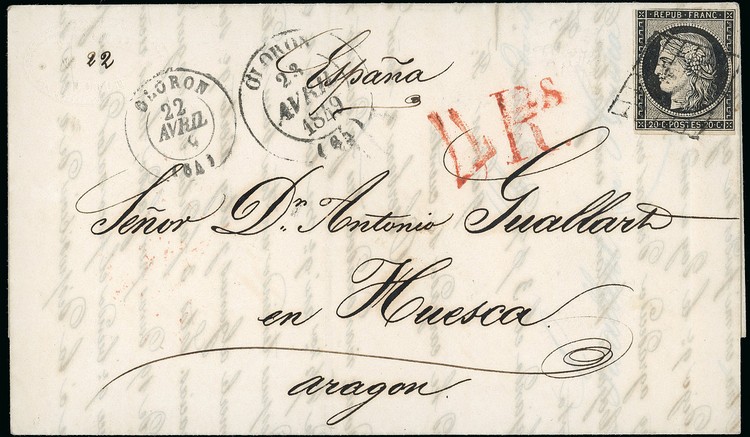 22
OLORON
22
AVRIL
(64)
OLORON
23
AVRIL
1849
(64)
España
4 Rs
REPUB · FRANC ·
20·C·POSTES·20·C
Señor Dn. Antonio Guallart
en Huesca.
aragon.